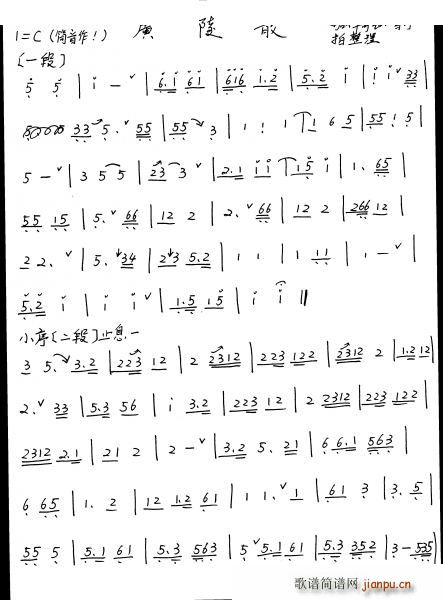 1=C (筒音作5!) 廣 陵 散
拍整理
(一段)
5 5 | i - ˅ | 6.i 6i | 6i6 i.2 | 5.2 i | i i ˅ 33
33 5. ˅ 55 | 55 3 | 1 1 | 1 1 6 5 | 55 1 5 |
5 - ˅ | 3 5 5 | 23 3 ˅ | 2.1 i i | i 5 i | 1. 65 |
55 15 | 5. ˅ 66 | 12 2 | 2. ˅ 66 | 12 2 | 266 12 |
2 2. ˅ | 5. 34 | 23 5.2 | 1 1 | 1 11 | 1 - ˅ |
5.2 i | i i ˅ | 1.5 15 | i i ‖
小序(二段)止息一
3 5. 3.2 | 223 12 | 2 2312 | 223 122 | 2312 2 | 1.2 12 |
2. ˅ 33 | 5.3 56 | i 3.2 | 223 12 | 2 2312 | 223 122 |
2312 2.1 | 21 2 | 2 - ˅ | 3.2 5. 21 | 6 6.1 563 |
6 65 | 1. 2 | 12 1.2 61 | 1 1. ˅ 1 | 61 3 | 3. 5 |
55 5 | 5.1 61 | 5.3 563 | 5 ˅ 5.1 61 | 5.3 352 | 3 - 535
歌谱简谱网
jianpu.cn